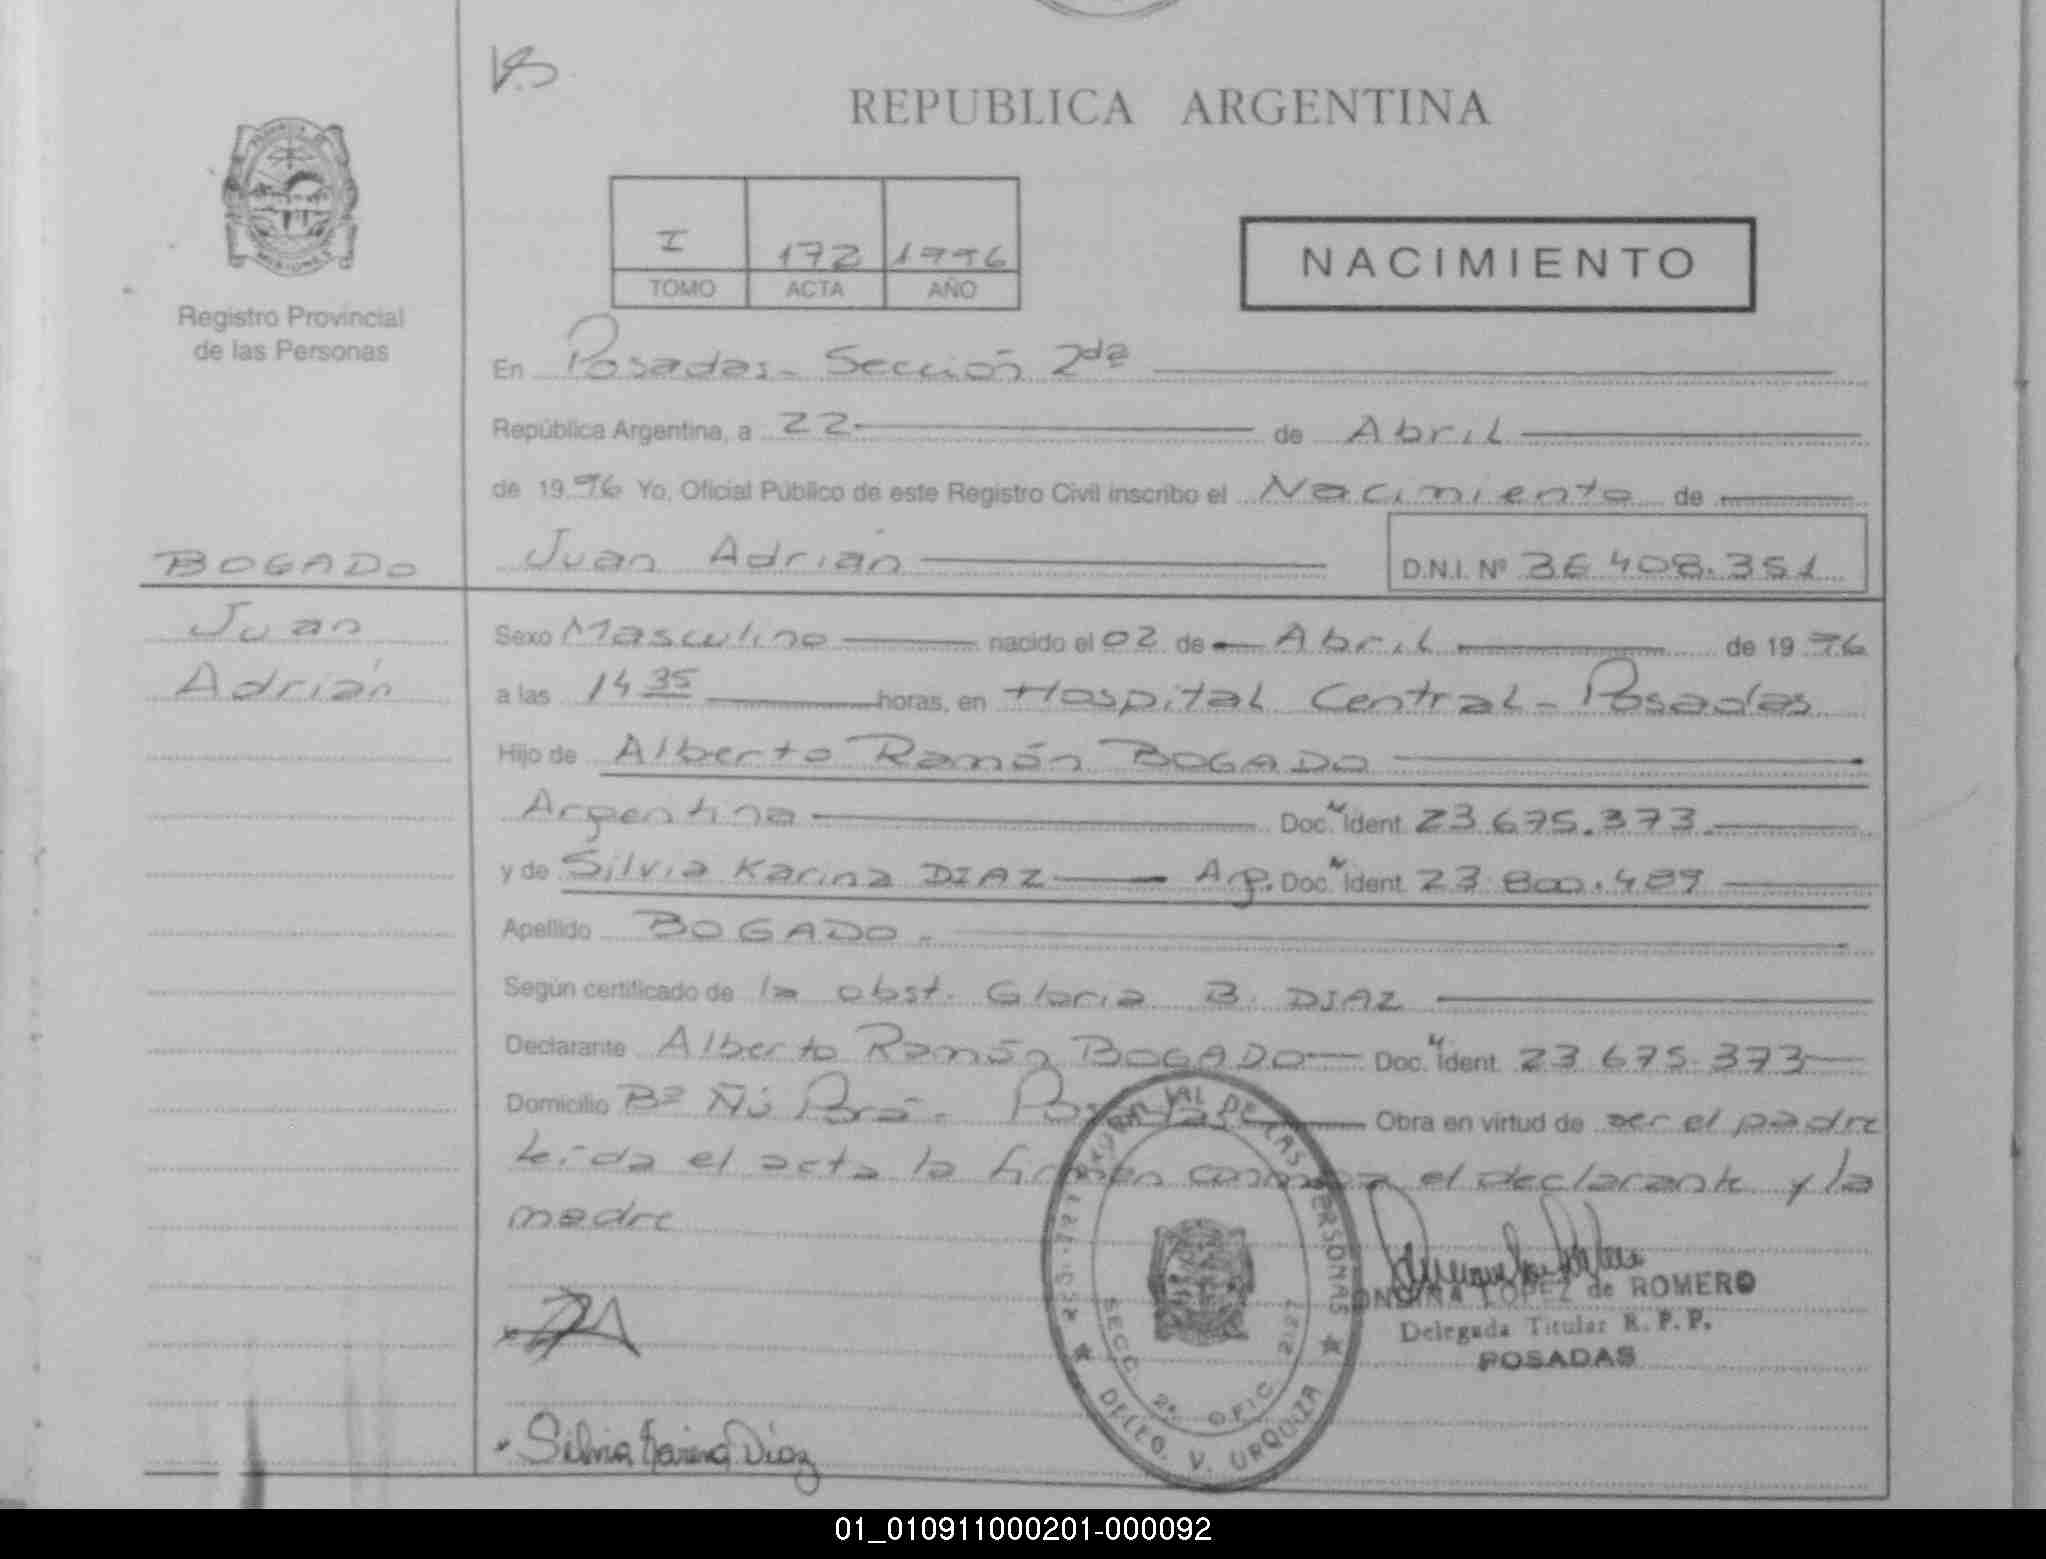 REPUBLICA ARGENTINA
MISIONES
Registro Provincial
de las Personas
I 172 1996
TOMO ACTA AÑO
NACIMIENTO
En Posadas - Sección 2da
República Argentina, a 22 de Abril
de 1996 Yo, Oficial Público de este Registro Civil inscribo el Nacimiento de
BOGADO
Juan
Adrián
Juan Adrián D.N.I. Nº 36 408.351
Sexo Masculino nacido el 02 de Abril de 1996
a las 14 35 horas, en Hospital Central - Posadas
Hijo de Alberto Ramón BOGADO
Argentina Doc. Ident. 23 675.373
y de Silvia Karina DIAZ Arg. Doc. Ident. 23 800.489
Apellido BOGADO.
Según certificado de la obst. Gloria B. DIAZ
Declarante Alberto Ramón BOGADO Doc. Ident. 23 675.373
Domicilio Bº Ñú Porá. Posadas Obra en virtud de ser el padre
Leída el acta la firman conmigo el declarante y la
madre
REGISTRO PROVINCIAL DE LAS PERSONAS
SECC. 2ª OFIC. 2127
DELEG. V. URQUIZA
ONDINA LOPEZ de ROMERO
Delegada Titular R. P. P.
POSADAS
Silvia Karina Diaz
01_010911000201-000092